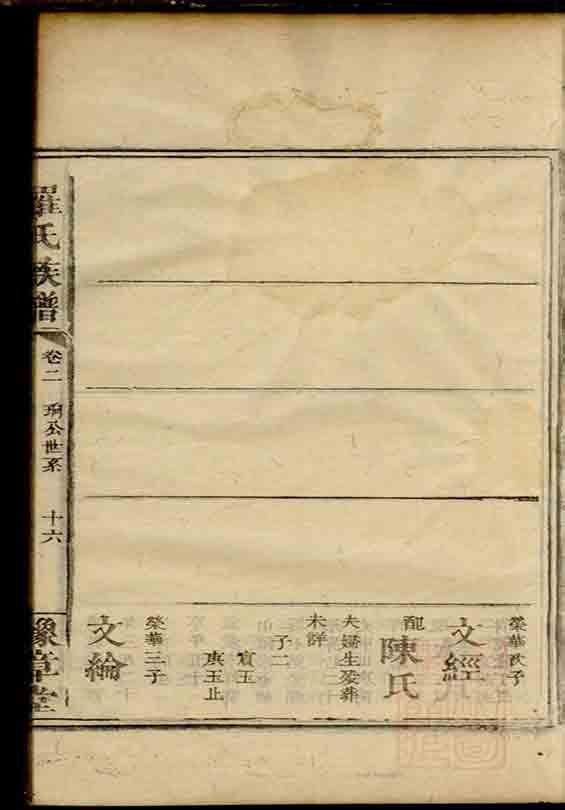 榮華次子
文經
配
陳氏
夫婦生歿葬
未詳
子二
寅玉
庚玉止
榮華三子
文綸
羅氏族譜
卷二
珦公世系
十六
豫章堂